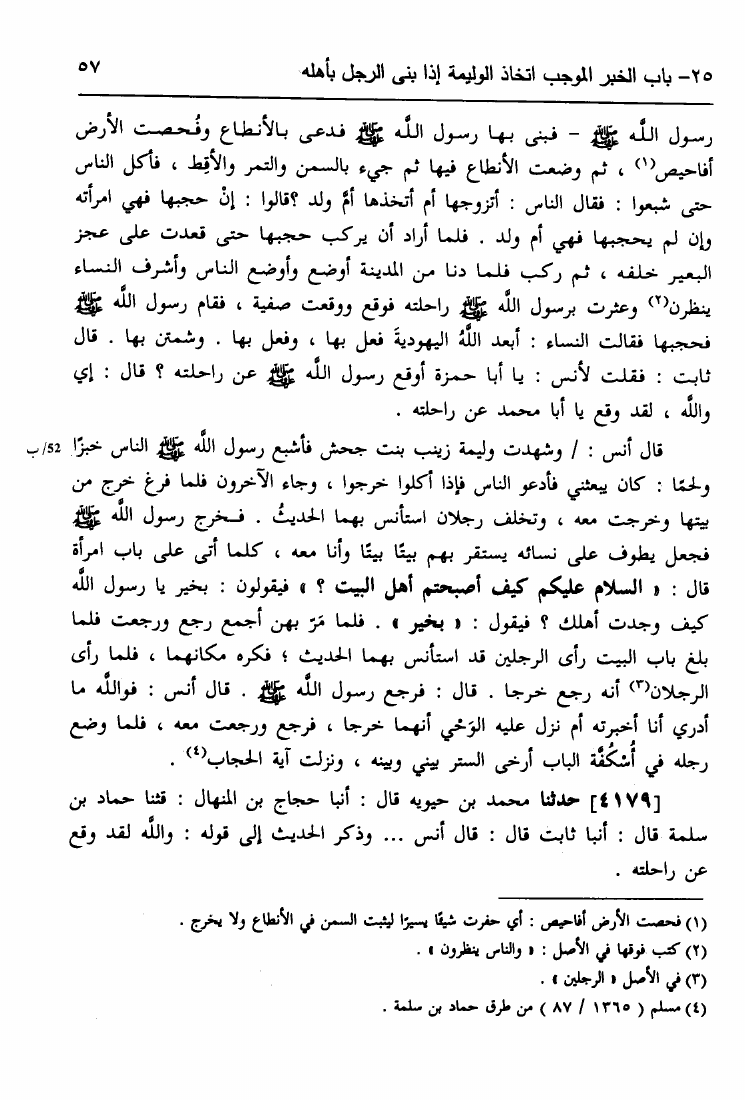 ٢٥- باب الخبر الموجب اتخاذ الوليمة إذا بنى الرجل بأهله ٥٧
رسول اللَّه ﷺ – فبنى بها رسول اللَّه ﷺ فدعى بالأنطاع وفُحصت الأرض
أفاحيص(١) ، ثم وضعت الأنطاع فيها ثم جيء بالسمن والتمر والأقِط ، فأكل الناس
حتى شبعوا : فقال الناس : أتزوجها أم أتخذها أمَّ ولد ؟قالوا : إنْ حجبها فهي امرأته
وإن لم يحجبها فهي أم ولد . فلما أراد أن يركب حجبها حتى قعدت على عجز
البعير خلفه ، ثم ركب فلما دنا من المدينة أوضع وأوضع الناس وأشرف النساء
ينظرن(٢) وعثرت برسول اللَّه ﷺ راحلته فوقع ووقعت صفية ، فقام رسول اللَّه ﷺ
فحجبها فقالت النساء : أبعد اللَّهُ اليهوديةَ فعل بها ، وفعل بها . وشمتن بها . قال
ثابت : فقلت لأنس : يا أبا حمزة أوقع رسول اللَّه ﷺ عن راحلته ؟ قال : إي
واللَّه ، لقد وقع يا أبا محمد عن راحلته .
قال أنس : / وشهدت وليمة زينب بنت جحش فأشبع رسول اللَّه ﷺ الناس خبزًا 52/ب
ولحمًا : كان يبعثني فأدعو الناس فإذا أكلوا خرجوا ، وجاء الآخرون فلما فرغ خرج من
بيتها وخرجت معه ، وتخلف رجلان استأنس بهما الحديثُ . فخرج رسول اللَّه ﷺ
فجعل يطوف على نسائه يستقر بهم بيتًا بيتًا وأنا معه ، كلما أتى على باب امرأة
قال : « السلام عليكم كيف أصبحتم أهل البيت ؟ » فيقولون : بخير يا رسول اللَّه
كيف وجدت أهلك ؟ فيقول : « بخير » . فلما مَرّ بهن أجمع رجع ورجعت فلما
بلغ باب البيت رأى الرجلين قد استأنس بهما الحديث ؛ فكره مكانهما ، فلما رأى
الرجلان(٣) أنه رجع خرجا . قال : فرجع رسول اللَّه ﷺ . قال أنس : فواللَّه ما
أدري أنا أخبرته أم نزل عليه الوَحْي أنهما خرجا ، فرجع ورجعت معه ، فلما وضع
رجله في أُسْكُفَّة الباب أرخى الستر بيني وبينه ، ونزلت آية الحجاب(٤) .
[٤١٧٩] حدثنا محمد بن حيويه قال : أنبا حجاج بن المنهال : قثنا حماد بن
سلمة قال : أنبا ثابت قال : قال أنس ... وذكر الحديث إلى قوله : واللَّه لقد وقع
عن راحلته .
(١) فحصت الأرض أفاحيص : أي حفرت شيئًا يسيرًا ليثبت السمن في الأنطاع ولا يخرج .
(٢) كتب فوقها في الأصل : « والناس ينظرون » .
(٣) في الأصل « الرجلين » .
(٤) مسلم ( ١٣٦٥ / ٨٧ ) من طرق حماد بن سلمة .